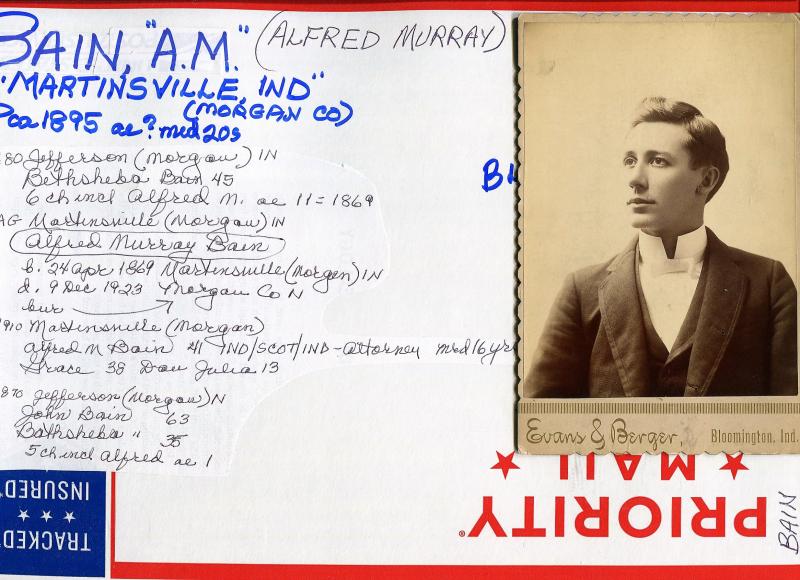 BAIN, "A.M." (ALFRED MURRAY)
"MARTINSVILLE, IND"
(MORGAN CO)
ca 1895 ae? mid 20s
80 Jefferson (Morgan) IN
Bethsheba Bain 45
6 ch incl Alfred M. ae 11 = 1869
AG Martinsville (Morgan) IN
Alfred Murray Bain
b. 24 Apr 1869 Martinsville (Morgan) IN
d. 9 Dec 1923 Morgan Co N
bur
1910 Martinsville (Morgan)
Alfred M Bain 41 IND/SCOT/IND - attorney mrd 16 yrs
Grace 38 Dau Julia 13
870 Jefferson (Morgan) N
John Bain 63
Bathsheba " 35
5 ch incl Alfred ae 1
Evans & Berger,
Bloomington, Ind.
PRIORITY
MAIL
TRACKED
INSURED
BAIN